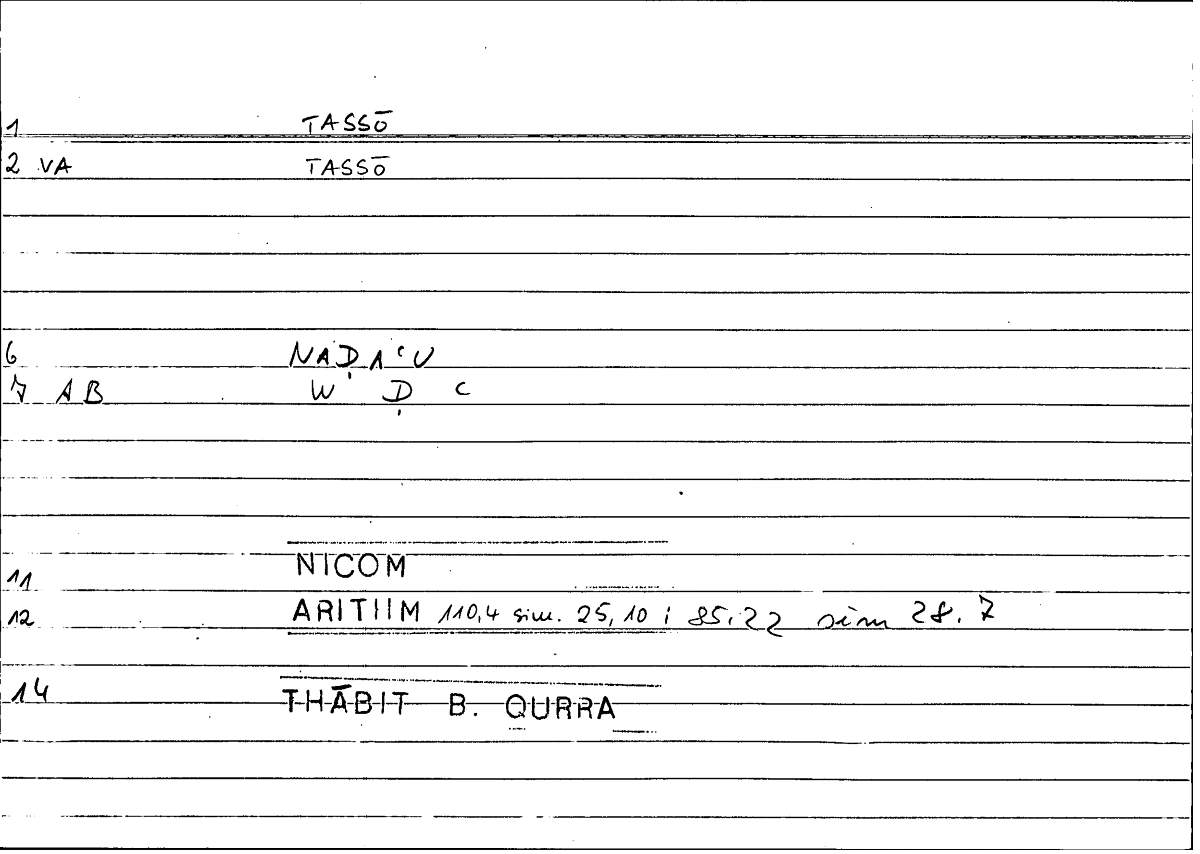 1 TASSŌ
2 VA TASSŌ
6 NAḌAʿU
7 AB W Ḍ ʿ
11 NICOM
12 ARITIIM 110,4 sim. 25,10 ; 85,22 sim 28.7
14 THĀBIT B. QURRA